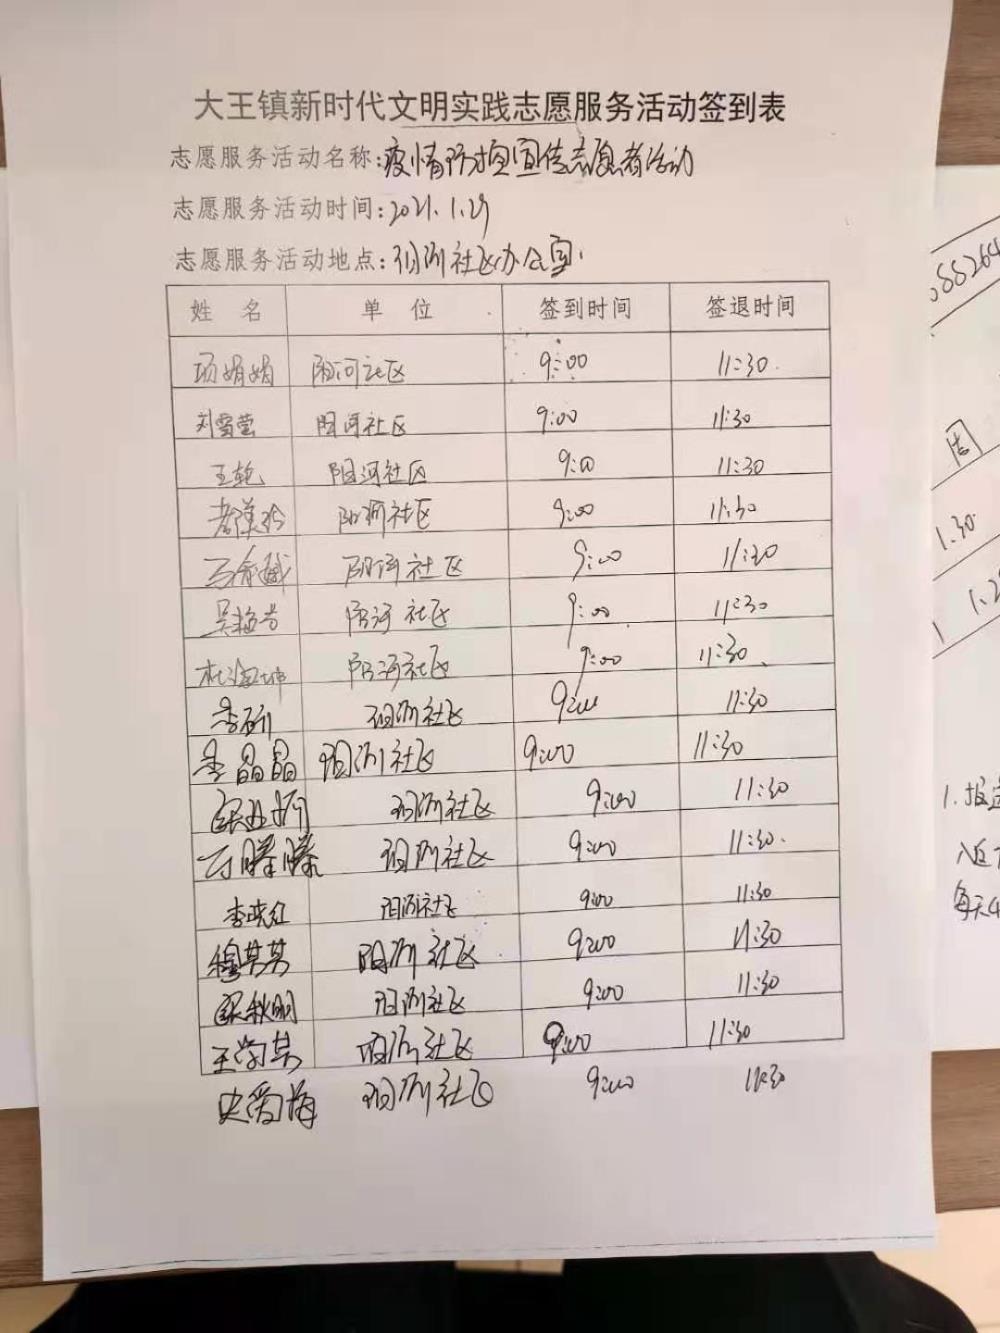 大王镇新时代文明实践志愿服务活动签到表
志愿服务活动名称:疫情防控宣传志愿者活动
志愿服务活动时间:2021.1.29
志愿服务活动地点:阳河社区办公室
姓 名 单 位 签到时间 签退时间
项娟娟 阳河社区 9:00 11:30
刘雪莹 阳河社区 9:00 11:30
王乾 阳河社区 9:00 11:30
阳河社区 9:00 11:30
阳河社区 9:00 11:30
吴梅芳 阳河社区 9:00 11:30
杜海坤 阳河社区 9:00 11:30
李研 阳河社区 9:00 11:30
李晶晶 阳河社区 9:00 11:30
阳河社区 9:00 11:30
万滕滕 阳河社区 9:00 11:30
李映红 阳河社区 9:00 11:30
穆其其 阳河社区 9:00 11:30
秋明 阳河社区 9:00 11:30
王学其 阳河社区 9:00 11:30
史爱梅 阳河社区 9:00 11:30
88264
周
1.30
1.2
1.报
每天